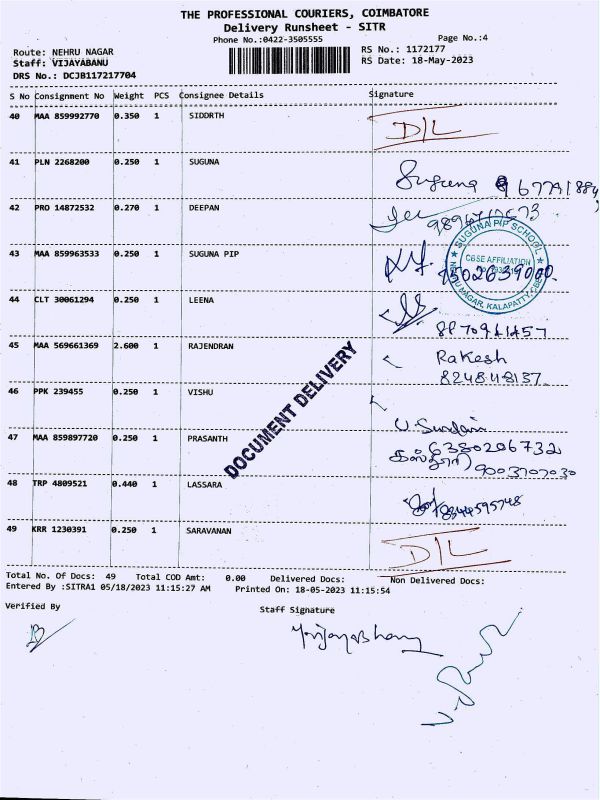 THE PROFESSIONAL COURIERS, COIMBATORE
Delivery Runsheet - SITR
Phone No.:0422-3505555
Page No.:4
Route: NEHRU NAGAR
RS No.: 1172177
Staff: VIJAYABANU
RS Date: 18-May-2023
DRS No.: DCJB117217704
S No Consignment No Weight PCS Consignee Details Signature
40 MAA 859992770 0.350 1 SIDDRTH D/L
41 PLN 2268200 0.250 1 SUGUNA Suguna
42 PRO 14872532 0.270 1 DEEPAN
43 MAA 859963533 0.250 1 SUGUNA PIP
SUGUNA PIP SCHOOL
CBSE AFFILIATION
NEHRU NAGAR, KALAPATTY, CBE
44 CLT 30061294 0.250 1 LEENA
45 MAA 569661369 2.600 1 RAJENDRAN Rakesh
46 PPK 239455 0.250 1 VISHU
DOCUMENT DELIVERY
47 MAA 859897720 0.250 1 PRASANTH 6380206732
9003707030
48 TRP 4809521 0.440 1 LASSARA 8344595748
49 KRR 1230391 0.250 1 SARAVANAN D/L
Total No. Of Docs: 49 Total COD Amt: 0.00 Delivered Docs: Non Delivered Docs:
Entered By :SITRA1 05/18/2023 11:15:27 AM Printed On: 18-05-2023 11:15:54
Verified By
Staff Signature